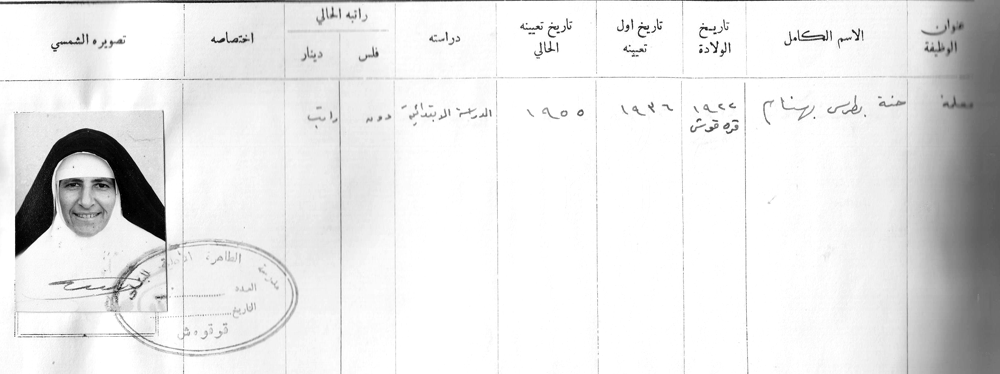 عنوان الوظيفة
الاسم الكامل
تاريخ الولادة
تاريخ اول تعيينه
تاريخ تعيينه الحالي
دراسته
راتبه الحالي
فلس
دينار
اختصاصه
تصويره الشمسي
معلمة
حنة بطرس بهنام
١٩٢٢
قره قوش
١٩٣٦
١٩٥٥
الدراسة الابتدائية
دون
راتب
مدرسة الطاهرة الأهلية
العدد
التاريخ
قره قوش